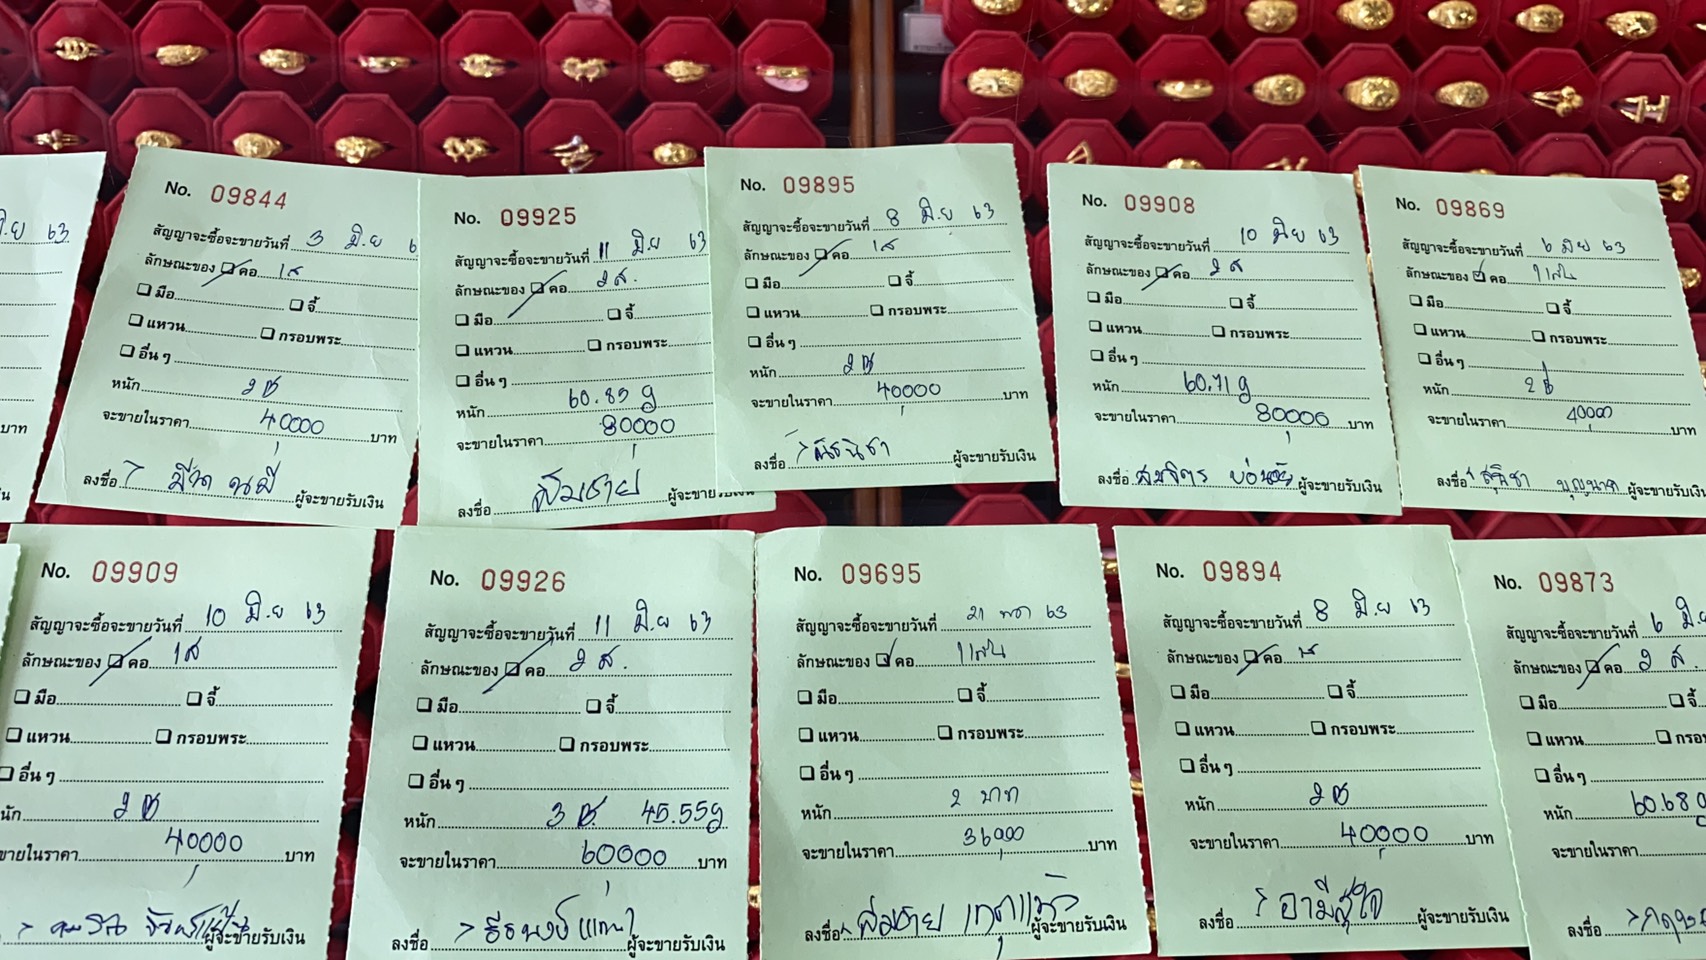 มิ.ย 63
บาท
No. 09844
สัญญาจะซื้อจะขายวันที่ 3 มิ.ย 6
ลักษณะของ คอ 1ส
มือ จี้
แหวน กรอบพระ
อื่น ๆ
หนัก 2บ
40000 บาท
ลงชื่อ ผู้จะขายรับเงิน
No. 09925
สัญญาจะซื้อจะขายวันที่ 11 มิ.ย 63
ลักษณะของ คอ 2ส.
มือ จี้
แหวน กรอบพระ
อื่น ๆ
หนัก 60.85 g
จะขายในราคา 80000
ลงชื่อ สมชาย ผู้จะขายรับเงิน
No. 09895
สัญญาจะซื้อจะขายวันที่ 8 มิ.ย 63
ลักษณะของ คอ 1ส
มือ จี้
แหวน กรอบพระ
อื่น ๆ
หนัก 2บ
จะขายในราคา 40000 บาท
ลงชื่อ ผู้จะขายรับเงิน
No. 09908
สัญญาจะซื้อจะขายวันที่ 10 มิ.ย 63
ลักษณะของ คอ 2ส
มือ จี้
แหวน กรอบพระ
อื่น ๆ
หนัก 60.71 g
จะขายในราคา 80000 บาท
ลงชื่อ สมจิตร ผู้จะขายรับเงิน
No. 09869
สัญญาจะซื้อจะขายวันที่ 6 มิย 63
ลักษณะของ คอ 1เส้น
มือ จี้
แหวน กรอบพระ
อื่น ๆ
หนัก 2บ
จะขายในราคา 40000 บาท
ลงชื่อ สุธิชา บุญนาค ผู้จะขายรับเงิน
No. 09909
สัญญาจะซื้อจะขายวันที่ 10 มิ.ย 63
ลักษณะของ คอ 1ส
มือ จี้
แหวน กรอบพระ
อื่น ๆ
หนัก 2บ
จะขายในราคา 40000 บาท
ผู้จะขายรับเงิน
No. 09926
สัญญาจะซื้อจะขายวันที่ 11 มิ.ย 63
ลักษณะของ คอ 2ส.
มือ จี้
แหวน กรอบพระ
อื่น ๆ
หนัก 3บ. 45.55g
จะขายในราคา 60000 บาท
ลงชื่อ ผู้จะขายรับเงิน
No. 09695
สัญญาจะซื้อจะขายวันที่ 21 พค 63
ลักษณะของ คอ 1เส้น
มือ จี้
แหวน กรอบพระ
อื่น ๆ
หนัก 2 บาท
จะขายในราคา 36000 บาท
ลงชื่อ สมชาย ผู้จะขายรับเงิน
No. 09894
สัญญาจะซื้อจะขายวันที่ 8 มิ.ย 63
ลักษณะของ คอ 1ส
มือ จี้
แหวน กรอบพระ
อื่น ๆ
หนัก 2บ
จะขายในราคา 40000 บาท
ลงชื่อ ผู้จะขายรับเงิน
No. 09873
สัญญาจะซื้อจะขายวันที่ 6 มิ.ย
ลักษณะของ คอ 2ส.
มือ จี้
แหวน
อื่น ๆ
หนัก 60.68
จะขายในราคา
ลงชื่อ